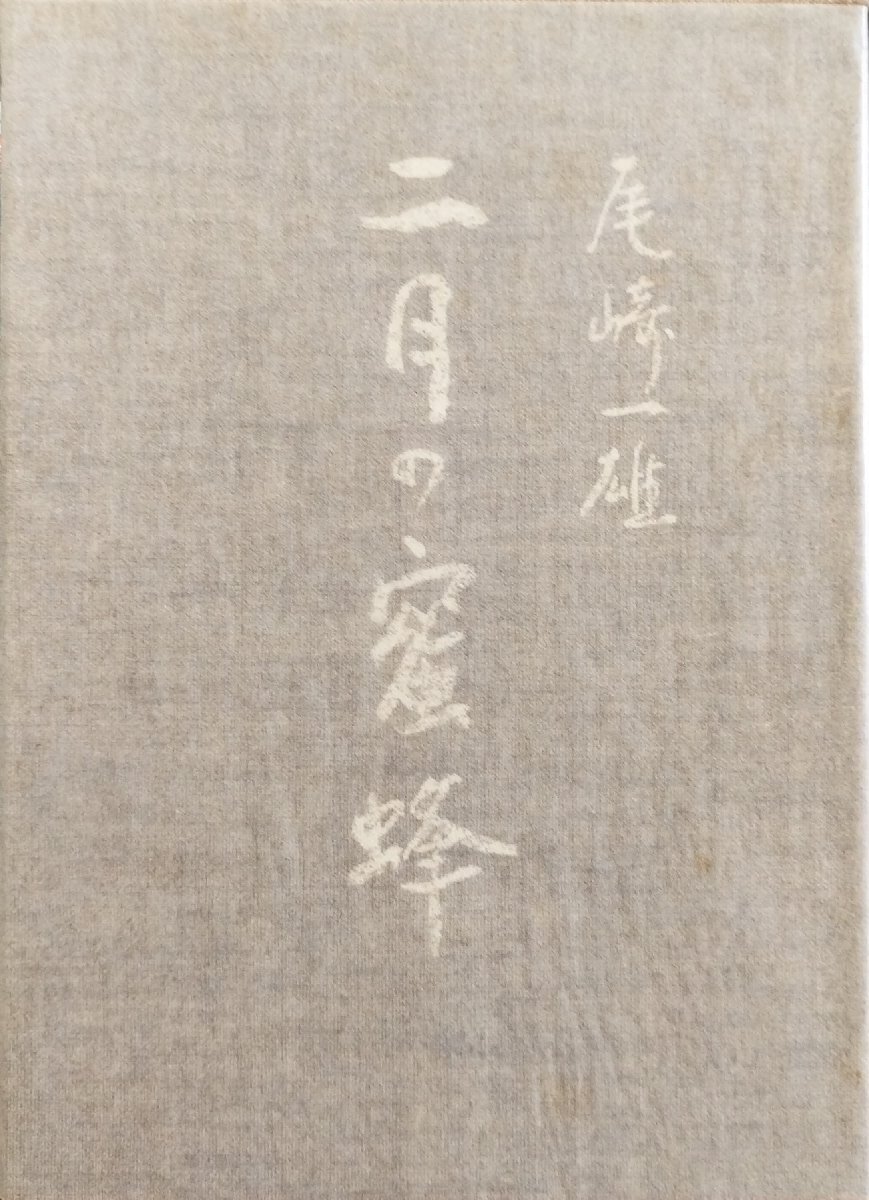 尾崎一雄
二月の蜜蜂